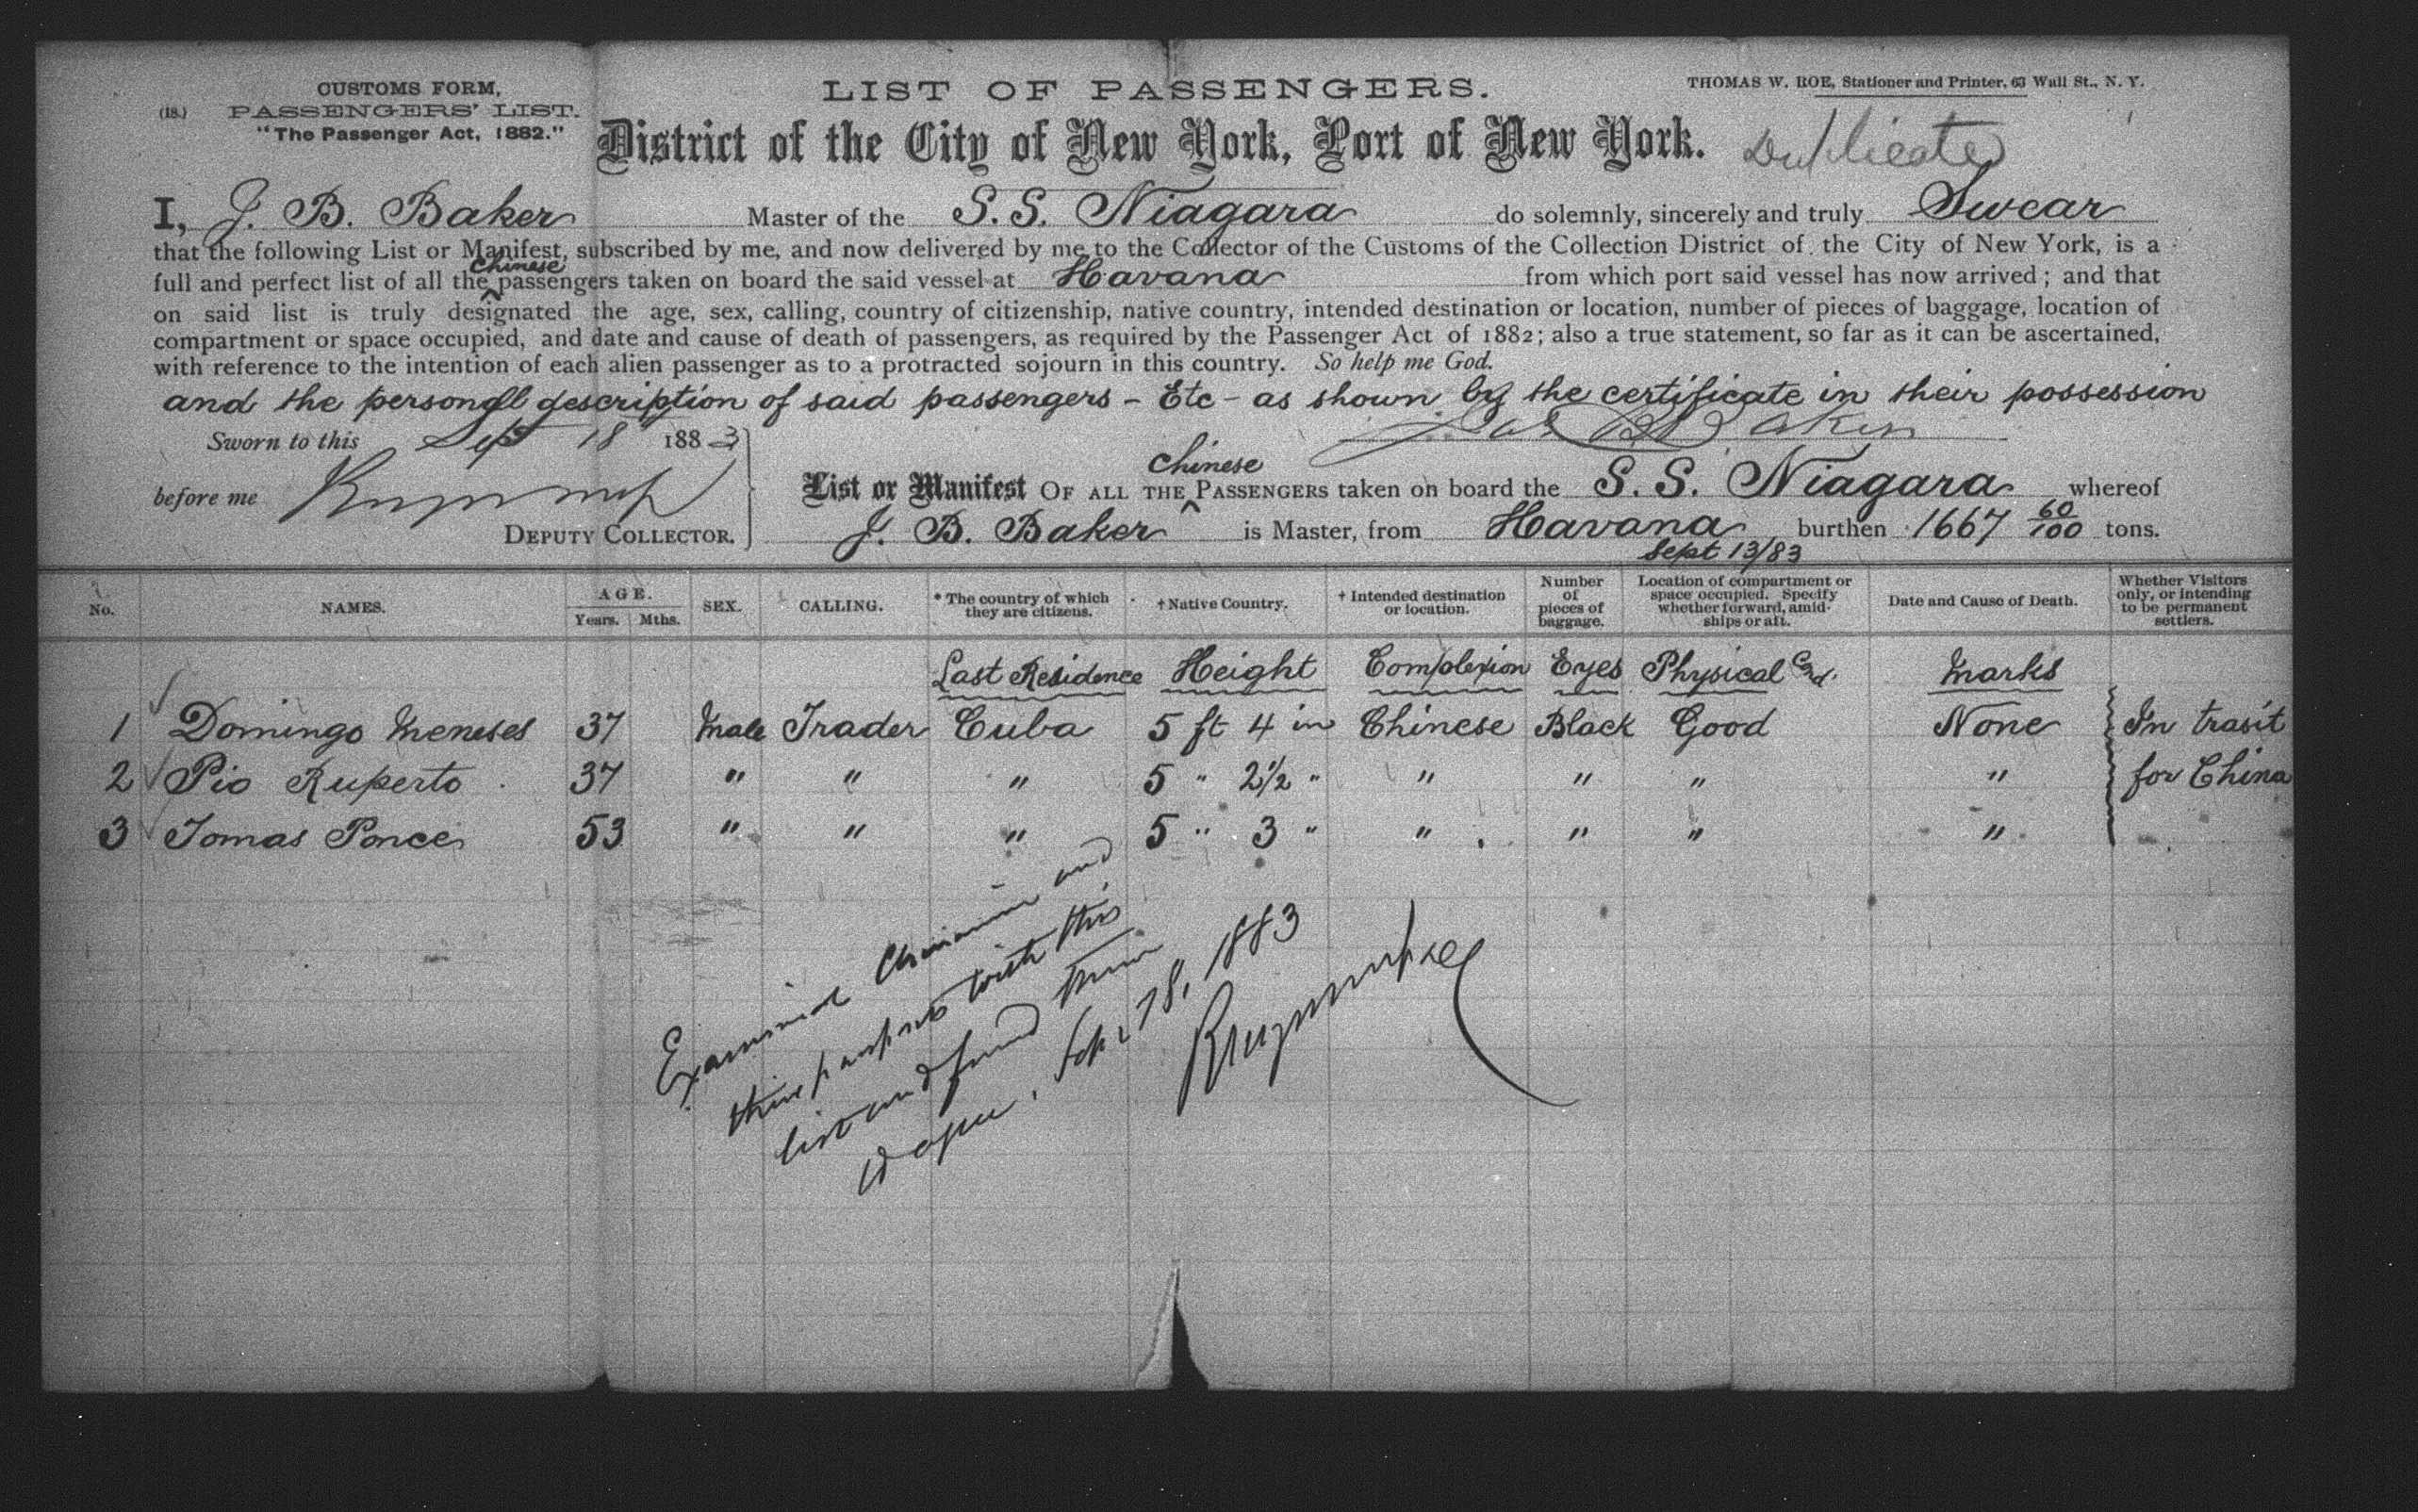 CUSTOMS FORM,
(18.) PASSENGERS' LIST.
"The Passenger Act, 1882."
LIST OF PASSENGERS.
THOMAS W. ROE, Stationer and Printer, 63 Wall St., N. Y.
District of the City of New York, Port of New York.
Duplicate
I, J. B. Baker Master of the S. S. Niagara do solemnly, sincerely and truly Swear
that the following List or Manifest, subscribed by me, and now delivered by me to the Collector of the Customs of the Collection District of the City of New York, is a
full and perfect list of all the Chinese passengers taken on board the said vessel at Havana from which port said vessel has now arrived; and that
on said list is truly designated the age, sex, calling, country of citizenship, native country, intended destination or location, number of pieces of baggage, location of
compartment or space occupied, and date and cause of death of passengers, as required by the Passenger Act of 1882; also a true statement, so far as it can be ascertained,
with reference to the intention of each alien passenger as to a protracted sojourn in this country. So help me God.
and the personall description of said passengers - Etc - as shown by the certificate in their possession
Sworn to this Sept 18 1883
Baker
before me
DEPUTY COLLECTOR.
List or Manifest OF ALL THE Chinese PASSENGERS taken on board the S. S. Niagara whereof
J. B. Baker is Master, from Havana burthen 1667 60/100 tons.
Sept 13/83
No. NAMES. AGE. Years. Mths. SEX. CALLING. * The country of which they are citizens. † Native Country. † Intended destination or location. Number of pieces of baggage. Location of compartment or space occupied. Specify whether forward, amidships or aft. Date and Cause of Death. Whether Visitors only, or intending to be permanent settlers.
Last Residence Height Complexion Eyes Physical Cnd. Marks
1 Domingo Meneses 37 Male Trader Cuba 5 ft 4 in Chinese Black Good None In trasit
2 Pio Ruperto 37 " " " 5 " 2½ " " " " " for China
3 Tomas Ponce 53 " " " 5 " 3 " " " " "
Examined Chinamen and
their passports with this
list and found them
to agree. Sept 18, 1883